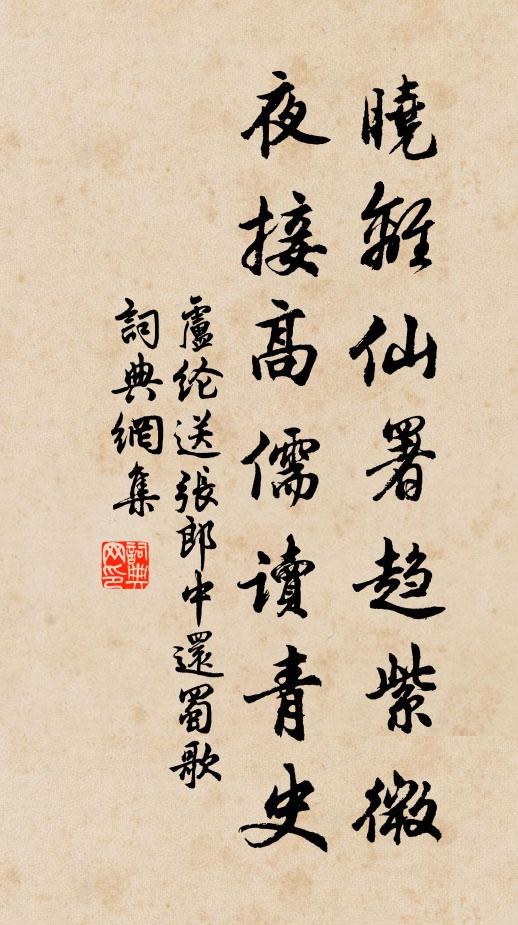 曉離仙署趨紫微
夜接高儒讀青史
盧纶送張郎中還蜀歌
詞典網集
詞典网印